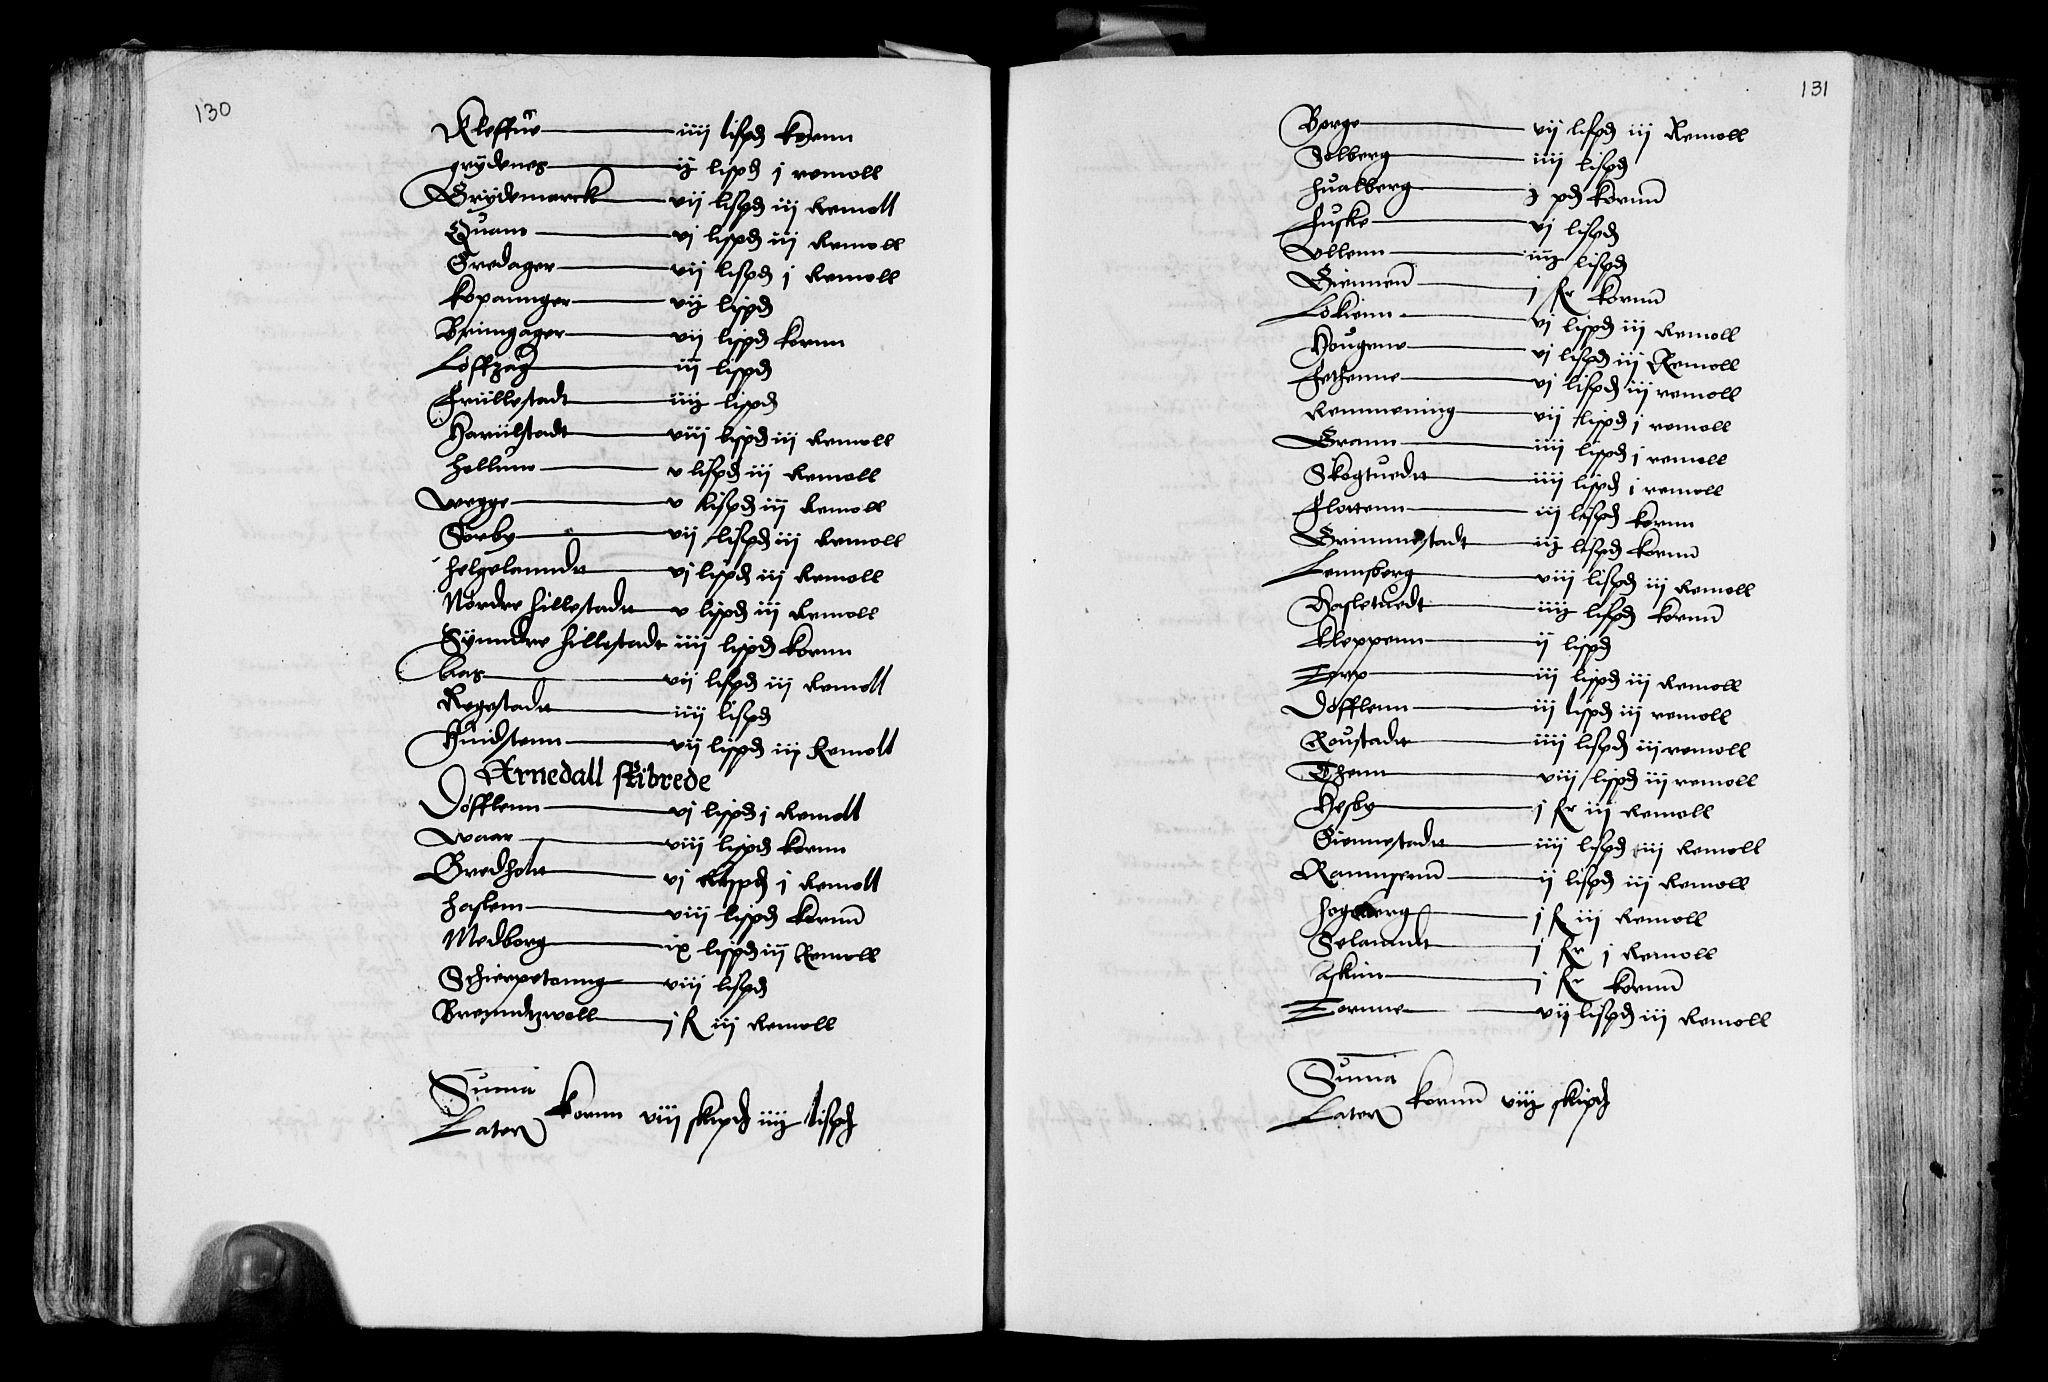 130
Kleffue iiij lispd kornn
grydenes ij lispd j remoll
Grydemarck vij lispd iij Remoll
Quam vj lispd iij Remoll
Gredager vij lispd j Remoll
kopannger vij lispd
Bringager vij lispd kornn
Løffzag iij lispd
Frullestadt iiij lispd
Harulstadt viij lispd iij Remoll
Hellum v lispd iij Remoll
wegge v lispd iij Remoll
Sørby vij lispd iij Remoll
helgelanndt vj lispd iij Remoll
Nørdre hillestadt v lispd iij Remoll
Synndre hillestadt iiij lispd kornn
Aas vij lispd iij Remoll
Regestadt iiij lispd
Huidstenn vij lispd iij Remoll
Arnedall skibrede
Døfflenn vj lispd j Remoll
waar viij lispd kornn
Bredholt vj lispd j Remoll
haslem viij lispd kornn
Medborg ix lispd iij Remoll
Schierpetanng viij lispd
Brenndzwoll j R iij Remoll
Suma
Lateris kornn viij skipd iiij lispd
131
Borge vij lispd iij Remoll
Solberg iiij lispd
hualberg j pd kornn
Fuske vj lispd
Ullenn iiij lispd
Giennem j Sr kornn
Lokienn vj lispd iij Remoll
Hougenn vj lispd iij Remoll
Fethenne vj lispd iij remoll
Remmening vij lispd j remoll
Grann iiij lispd j remoll
Skogtuedt iiij lispd j remoll
Flottenn iij lispd kornn
Grimmestadt iij lispd kornn
Lennsberg viij lispd iij Remoll
Hasletuedt iiij lispd kornn
kleppenn ij lispd
Torp iij lispd iij Remoll
Døfflenn iij lispd iij remoll
Roustadt iiij lispd iij remoll
Thenn viij lispd iij remoll
Hesby j Sr iij Remoll
Giennestadt iiij lispd iij Remoll
Rannsenn ij lispd iij Remoll
hogeberg j R iij Remoll
Selanndt j Sr j Remoll
Askim j Sr kornn
Tornne vij lispd iij Remoll
Suma
Lateris kornn viij skipd